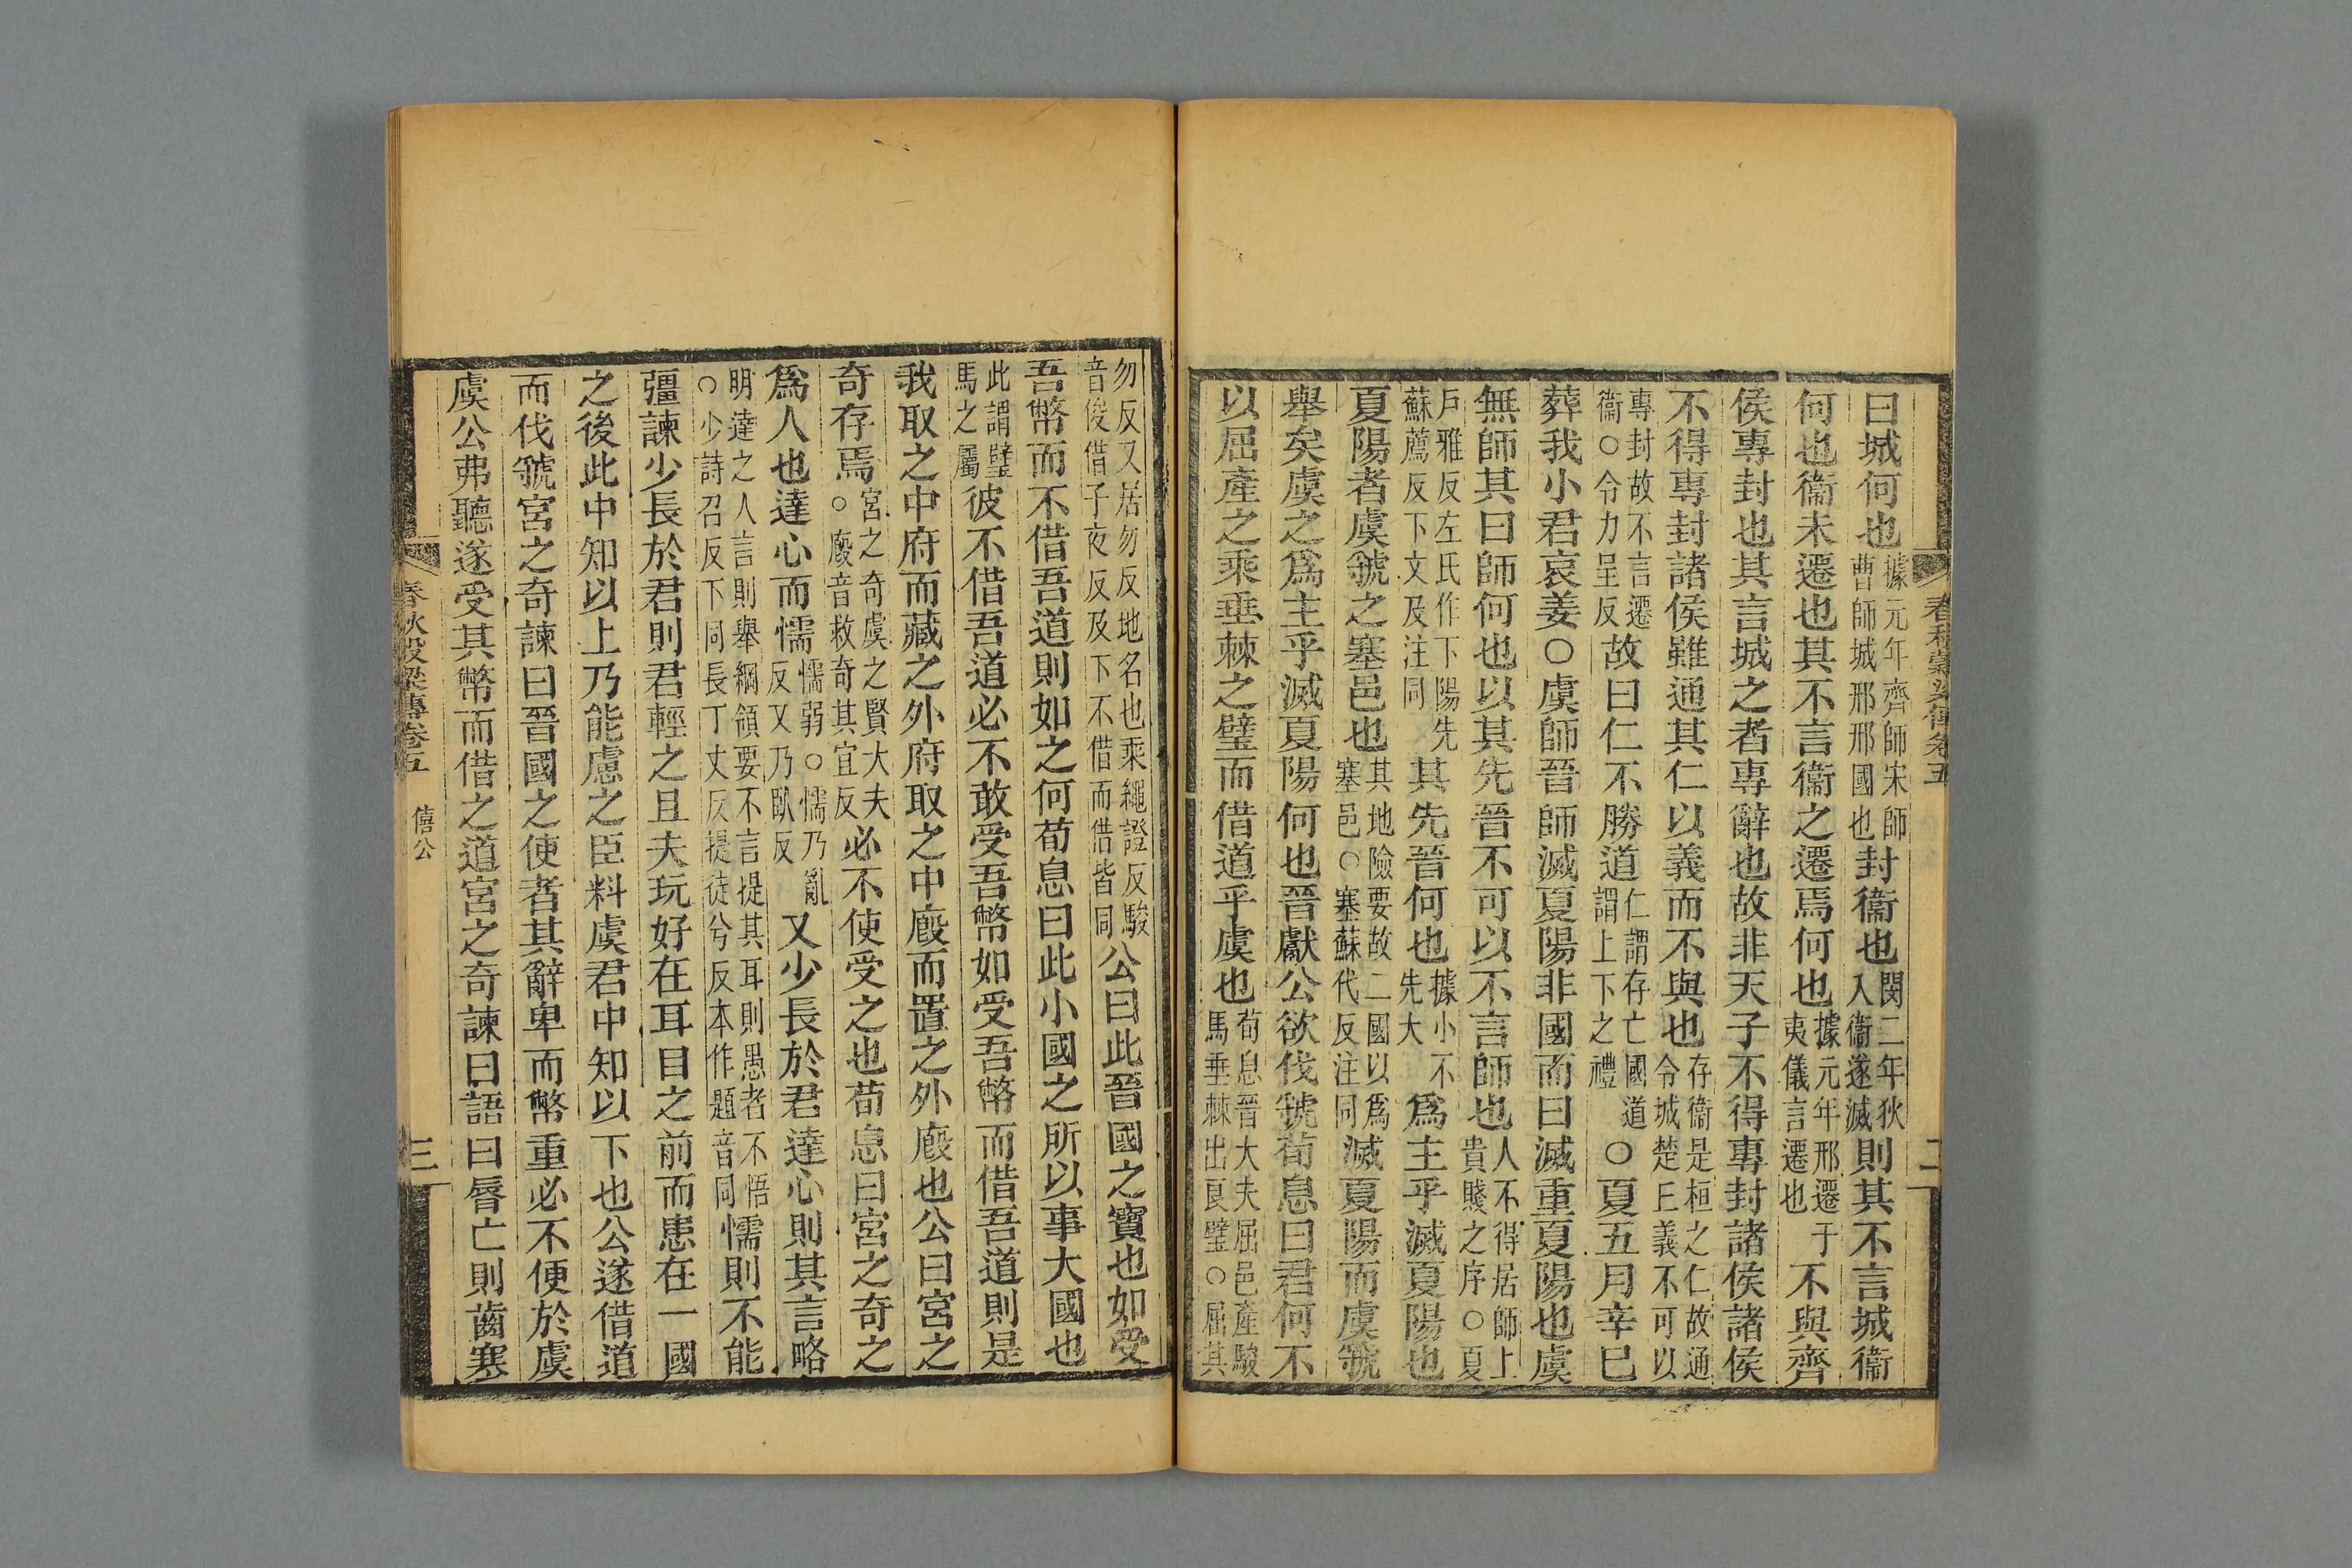 曰城何也據元年齊師宋師曹師城邢邢國也封衞也閔二年狄入衞遂滅則其不言城衞
何也衞未遷也其不言衞之遷焉何也據元年邢遷于夷儀言遷也不與齊
侯專封也其言城之者專辭也故非天子不得專封諸侯諸侯
不得專封諸侯雖通其仁以義而不與也存衞是桓之仁故通令城楚丘義不可以
專封故不言遷衞○令力呈反故曰仁不勝道仁謂存亡國道謂上下之禮○夏五月辛巳
葬我小君哀姜○虞師晉師滅夏陽非國而曰滅重夏陽也虞
無師其曰師何也以其先晉不可以不言師也人不得居師上貴賤之序○夏
戶雅反左氏作下陽先蘇薦反下文及注同其先晉何也據小不先大爲主乎滅夏陽也
夏陽者虞虢之塞邑也其地險要故二國以爲塞邑○塞蘇代反注同滅夏陽而虞虢
舉矣虞之爲主乎滅夏陽何也晉獻公欲伐虢荀息曰君何不
以屈產之乘垂棘之璧而借道乎虞也荀息晉大夫屈邑產駿馬垂棘出良璧○屈其
春秋穀梁傳卷五
二
勿反又居勿反地名也乘繩證反駿音俊借子夜反及下不借而借皆同公曰此晉國之寶也如受
吾幣而不借吾道則如之何荀息曰此小國之所以事大國也
此謂璧馬之屬彼不借吾道必不敢受吾幣如受吾幣而借吾道則是
我取之中府而藏之外府取之中廏而置之外廏也公曰宮之
奇存焉宮之奇虞之賢大夫○廏音救奇其宜反必不使受之也荀息曰宮之奇之
爲人也達心而懦懦弱○懦乃亂反又乃臥反又少長於君達心則其言略
明達之人言則舉綱領要不言提其耳則愚者不悟○少詩召反下同長丁丈反提徒兮反本作題音同懦則不能
彊諫少長於君則君輕之且夫玩好在耳目之前而患在一國
之後此中知以上乃能慮之臣料虞君中知以下也公遂借道
而伐虢宮之奇諫曰晉國之使者其辭卑而幣重必不便於虞
虞公弗聽遂受其幣而借之道宮之奇諫曰語曰脣亡則齒寒
春秋穀梁傳卷五
僖公
三